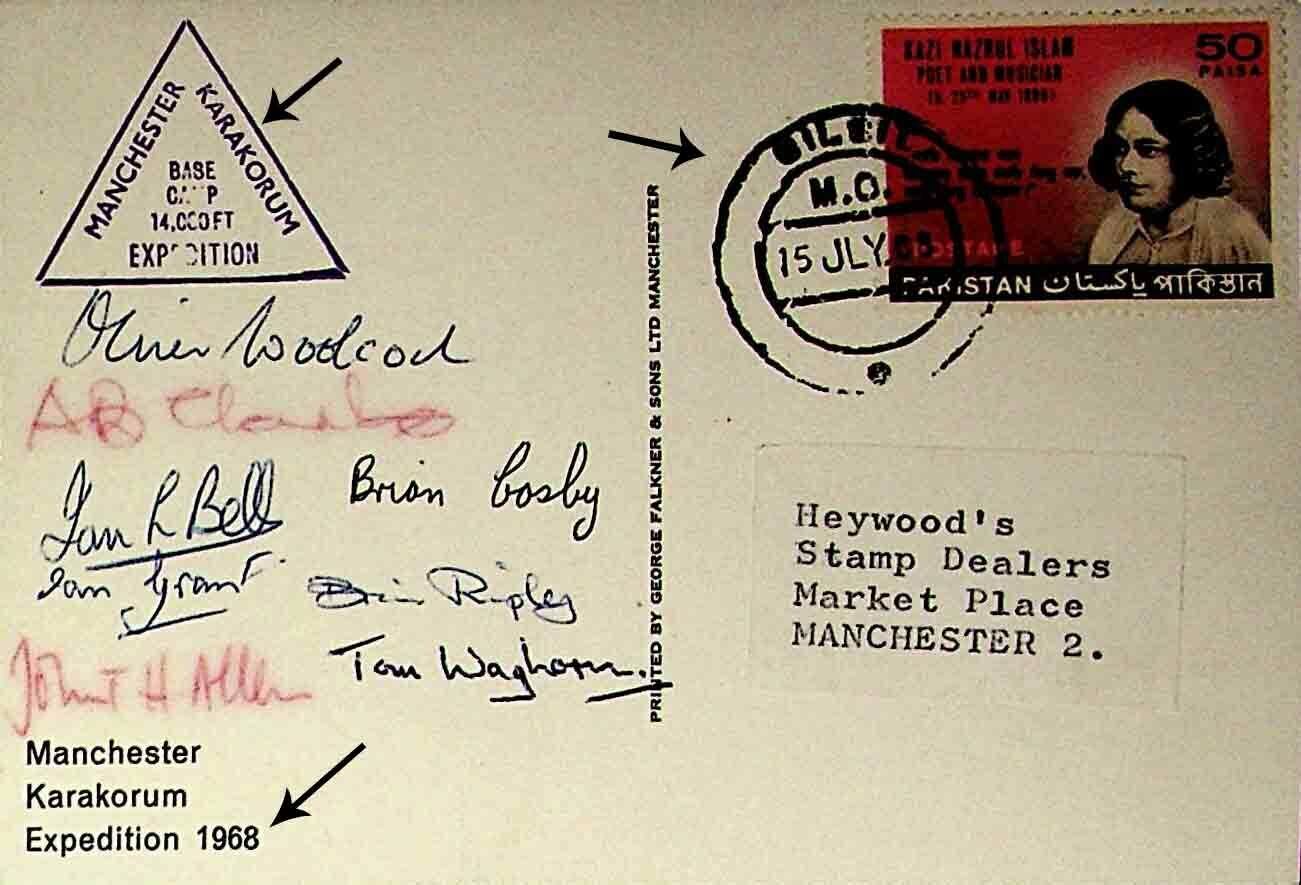 MANCHESTER
KARAKORUM
BASE
14,000 FT
EXPEDITION
Oliver Woodcock
AB
Ian L Bell
Brian Cosby
Ian Grant
Brian Ripley
John T H Allen
Tom Waghorn.
Manchester
Karakorum
Expedition 1968
PRINTED BY GEORGE FALKNER & SONS LTD MANCHESTER
KAZI NAZRUL ISLAM
POET AND MUSICIAN
50
PAISA
POSTAGE
PAKISTAN پاکستان পাকিস্তান
GILGIT
M.O.
15 JLY 68
Heywood's
Stamp Dealers
Market Place
MANCHESTER 2.